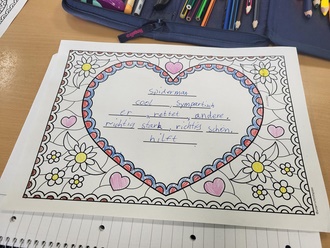 Spiderman
cool, sympatisch
er, rettet, andere,
richtig stark, richtig schön,
hilft